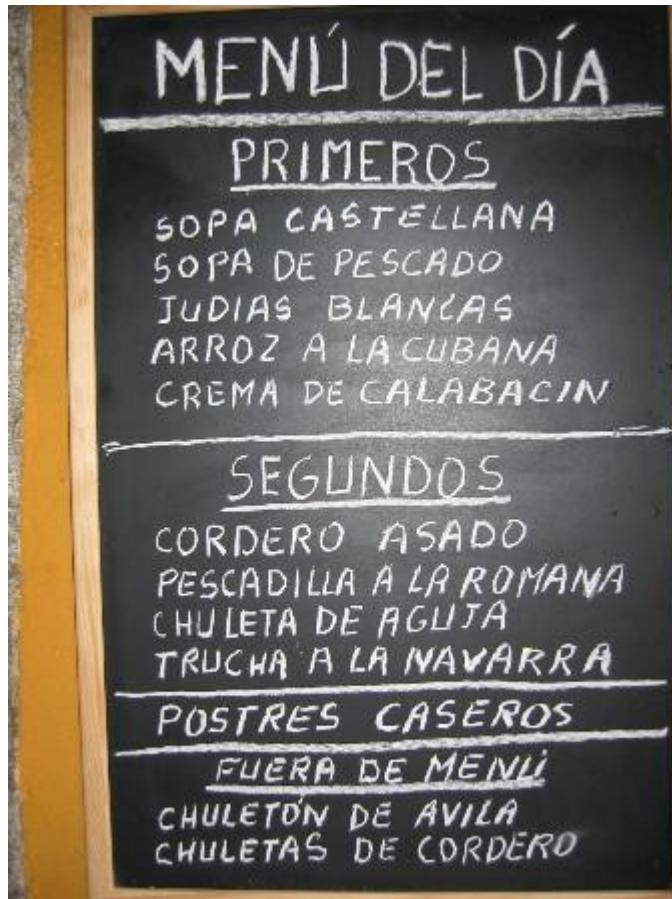 MENÚ DEL DÍA
PRIMEROS
SOPA CASTELLANA
SOPA DE PESCADO
JUDIAS BLANCAS
ARROZ A LA CUBANA
CREMA DE CALABACIN
SEGUNDOS
CORDERO ASADO
PESCADILLA A LA ROMANA
CHULETA DE AGUJA
TRUCHA A LA NAVARRA
POSTRES CASEROS
FUERA DE MENÚ
CHULETÓN DE AVILA
CHULETAS DE CORDERO